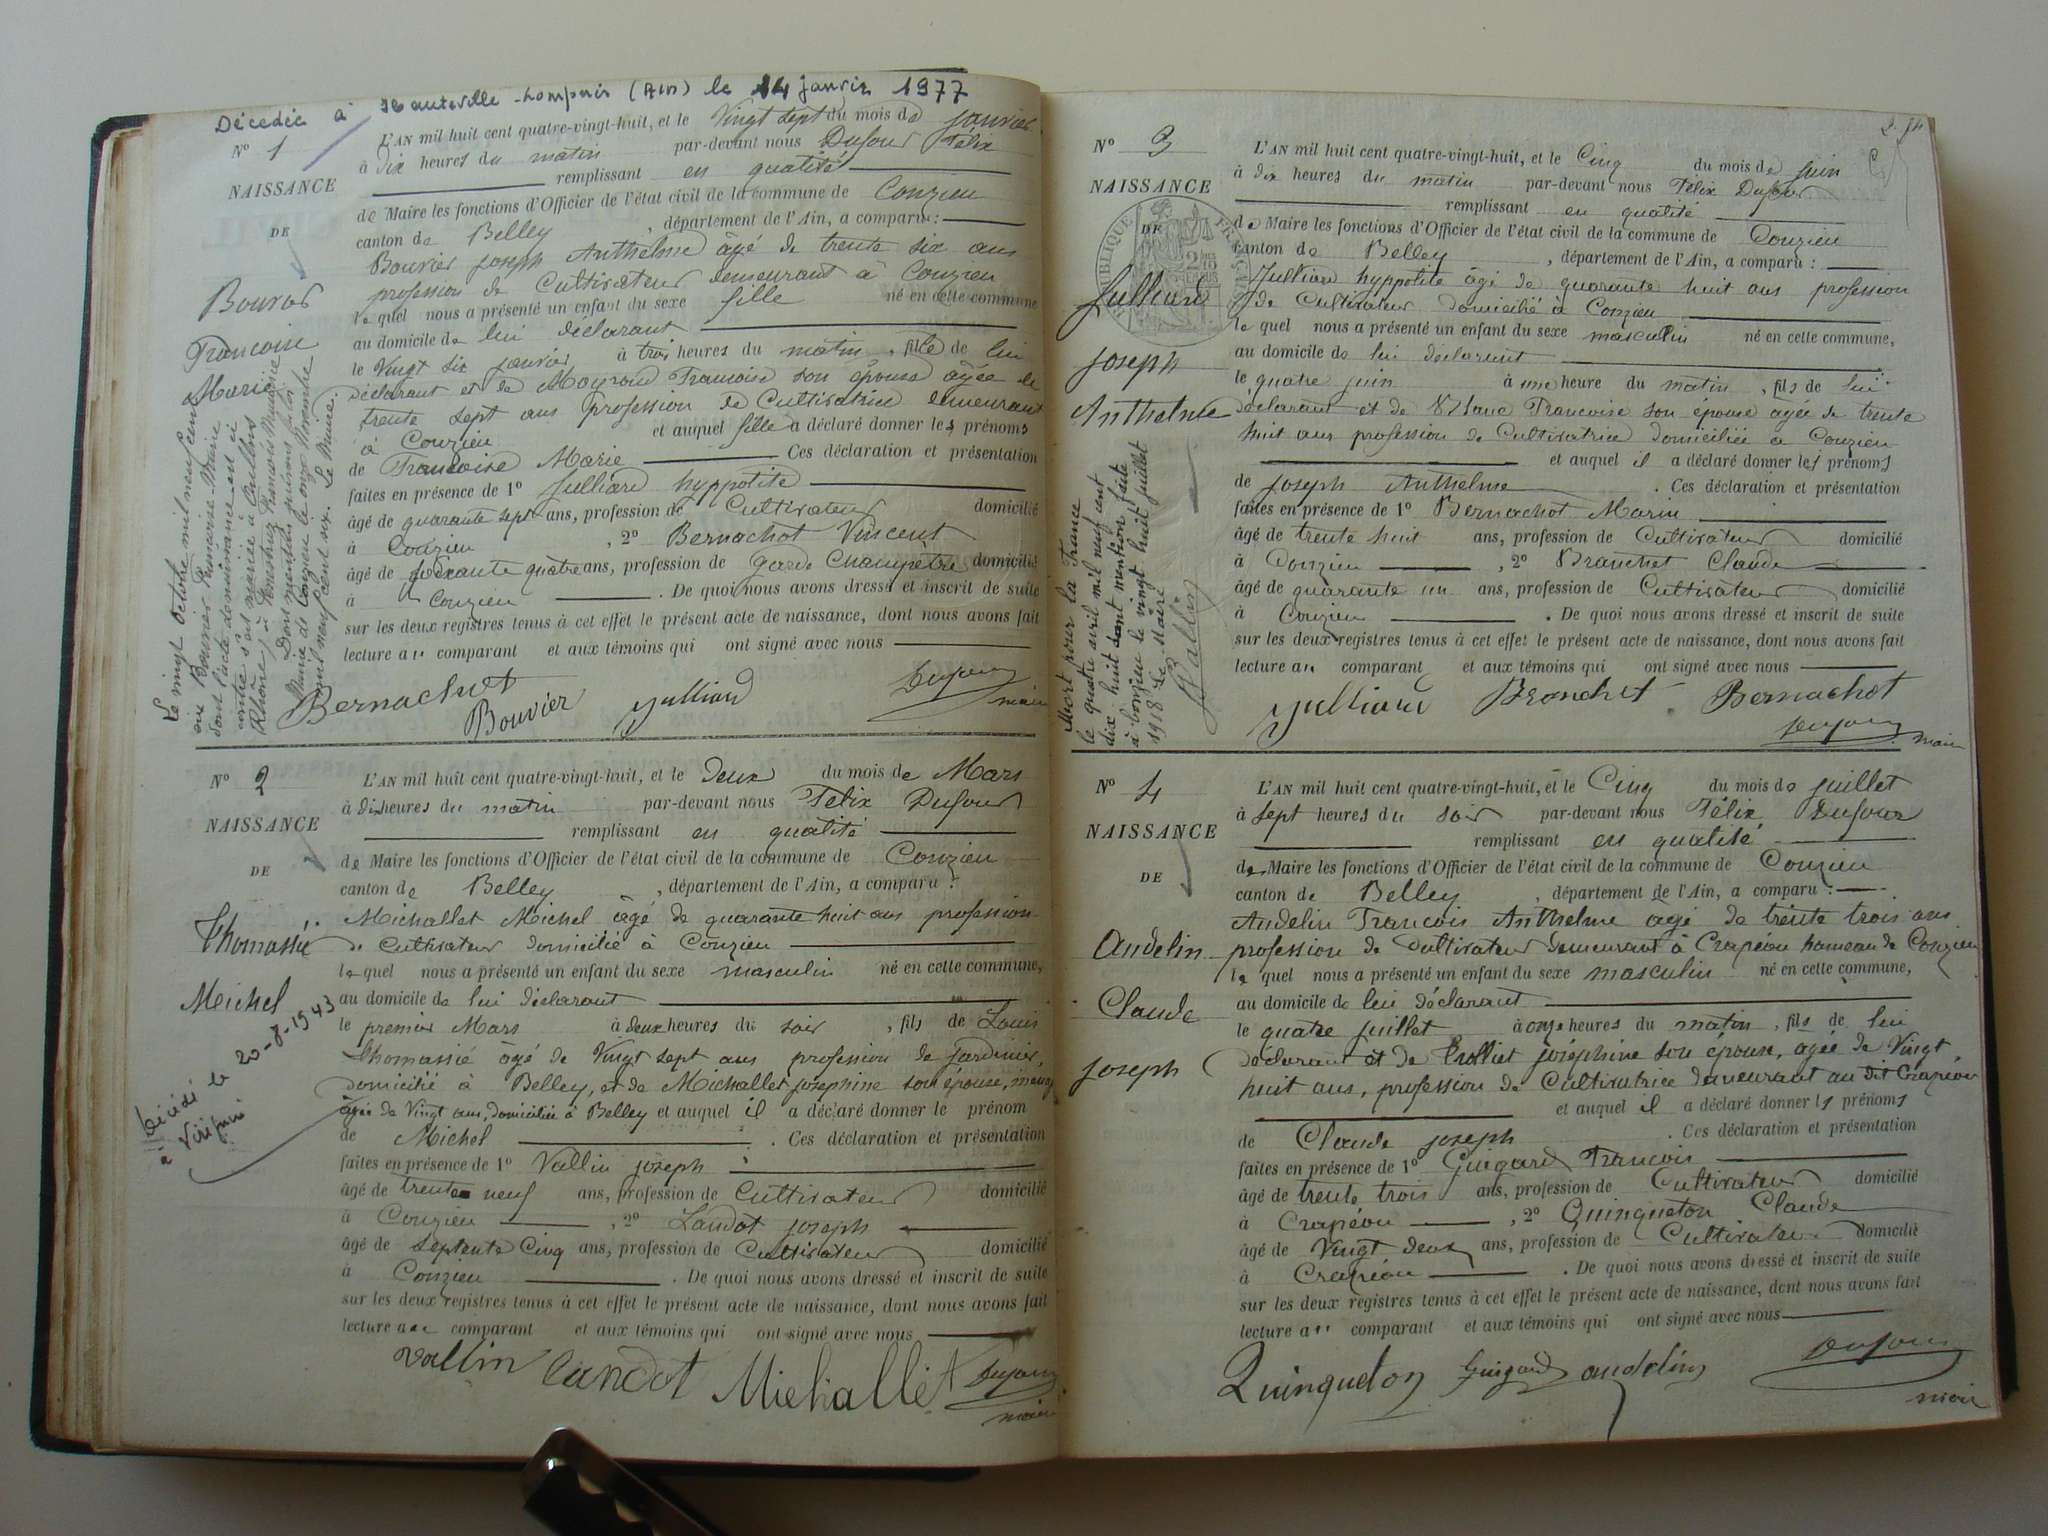 Décédée à Hauteville-Lompnès (Ain) le 14 janvier 1977
N° 1
NAISSANCE
DE
Bouvier
Françoise
Marie
L'AN mil huit cent quatre-vingt-huit, et le Vingt sept du mois de janvier
à dix heures du matin par-devant nous Dufour Félix
remplissant en qualité
de Maire les fonctions d'Officier de l'état civil de la commune de Conzieu
canton de Belley, département de l'Ain, a comparu :
Bouvier joseph Anthelme âgé de trente six ans
profession de Cultivateur demeurant à Conzieu
lequel nous a présenté un enfant du sexe fille né en cette commune
au domicile de lui déclarant
le Vingt six janvier à trois heures du matin, fille de lui
déclarant et de Françoise son épouse âgée de
trente sept ans profession de Cultivatrice demeurant
à Conzieu et auquel fille a déclaré donner les prénoms
de Françoise Marie Ces déclaration et présentation
faites en présence de 1° Julliard hyppotite
âgé de quarante sept ans, profession de Cultivateur domicilié
à Conzieu, 2° Bernachot Vincent
âgé de soixante quatre ans, profession de garde Champêtre domicilié
à Conzieu. De quoi nous avons dressé et inscrit de suite
sur les deux registres tenus à cet effet le présent acte de naissance, dont nous avons fait
lecture au comparant et aux témoins qui ont signé avec nous
Bernachot Bouvier Julliard Dufour maire
Le vingt octobre mil neuf cent
six Bouvier Françoise-Marie
dont l'acte de naissance est ci
contre s'est mariée à
Rhône) à François
Dont mention par nous
Maire de Conzieu le onze Novembre
mil neuf cent six. Le Maire.
N° 2
NAISSANCE
DE
Thomassié
Michel
Décédé le 20-8-1943
à
L'AN mil huit cent quatre-vingt-huit, et le Deux du mois de Mars
à dix heures du matin par-devant nous Félix Dufour
remplissant en qualité
de Maire les fonctions d'Officier de l'état civil de la commune de Conzieu
canton de Belley, département de l'Ain, a comparu :
Michallet Michel âgé de quarante huit ans profession
de Cultivateur domicilié à Conzieu
lequel nous a présenté un enfant du sexe masculin né en cette commune,
au domicile de lui déclarant
le premier Mars à deux heures du soir, fils de Louis
thomassié âgé de Vingt sept ans profession de jardinier,
domicilié à Belley, et de Michallet josephine son épouse,
âgée de Vingt ans, domiciliée à Belley et auquel il a déclaré donner le prénom
de Michel. Ces déclaration et présentation
faites en présence de 1° Vallin joseph
âgé de trente neuf ans, profession de Cultivateur domicilié
à Conzieu, 2° Landot joseph
âgé de Septente Cinq ans, profession de Cultivateur domicilié
à Conzieu. De quoi nous avons dressé et inscrit de suite
sur les deux registres tenus à cet effet le présent acte de naissance, dont nous avons fait
lecture au comparant et aux témoins qui ont signé avec nous
Vallin Landot Michallet Dufour maire
N° 3
NAISSANCE
DE
Julliard
joseph
Anthelme
L'AN mil huit cent quatre-vingt-huit, et le Cinq du mois de juin
à dix heures du matin par-devant nous Félix Dufour
remplissant en qualité
de Maire les fonctions d'Officier de l'état civil de la commune de Conzieu
canton de Belley, département de l'Ain, a comparu :
Julliard hyppotite âgé de quarante huit ans profession
de Cultivateur domicilié à Conzieu
lequel nous a présenté un enfant du sexe masculin né en cette commune,
au domicile de lui déclarant
le quatre juin à une heure du matin, fils de lui
déclarant et de Françoise son épouse âgée de trente
huit ans profession de Cultivatrice domiciliée à Conzieu
et auquel il a déclaré donner les prénoms
de joseph Anthelme. Ces déclaration et présentation
faites en présence de 1° Bernachot Marin
âgé de trente huit ans, profession de Cultivateur domicilié
à Conzieu, 2° Branchet Claude
âgé de quarante un ans, profession de Cultivateur domicilié
à Conzieu. De quoi nous avons dressé et inscrit de suite
sur les deux registres tenus à cet effet le présent acte de naissance, dont nous avons fait
lecture au comparant et aux témoins qui ont signé avec nous
Julliard Branchet Bernachot
Dufour maire
Mort pour la France
le quatre avril mil neuf cent
dix huit dont mention faite
à Conzieu le vingt huit juillet
1918 Le Maire
Vallin
N° 4
NAISSANCE
DE
Andelin
Claude
joseph
L'AN mil huit cent quatre-vingt-huit, et le Cinq du mois de juillet
à sept heures du soir par-devant nous Félix Dufour
remplissant en qualité
de Maire les fonctions d'Officier de l'état civil de la commune de Conzieu
canton de Belley, département de l'Ain, a comparu :
Andelin François Anthelme âgé de trente trois ans
profession de Cultivateur demeurant à Crapéou hameau de Conzieu
lequel nous a présenté un enfant du sexe masculin né en cette commune,
au domicile de lui déclarant
le quatre juillet à onze heures du matin, fils de lui
déclarant et de Trolliet joséphine son épouse, âgée de Vingt
huit ans, profession de Cultivatrice demeurant au dit Crapéou
et auquel il a déclaré donner les prénoms
de Claude joseph. Ces déclaration et présentation
faites en présence de 1° Guigard François
âgé de trente trois ans, profession de Cultivateur domicilié
à Crapéou, 2° Quinqueton Claude
âgé de Vingt Deux ans, profession de Cultivateur domicilié
à Crapéou. De quoi nous avons dressé et inscrit de suite
sur les deux registres tenus à cet effet le présent acte de naissance, dont nous avons fait
lecture au comparant et aux témoins qui ont signé avec nous
Quinqueton Guigard andelin Dufour
maire